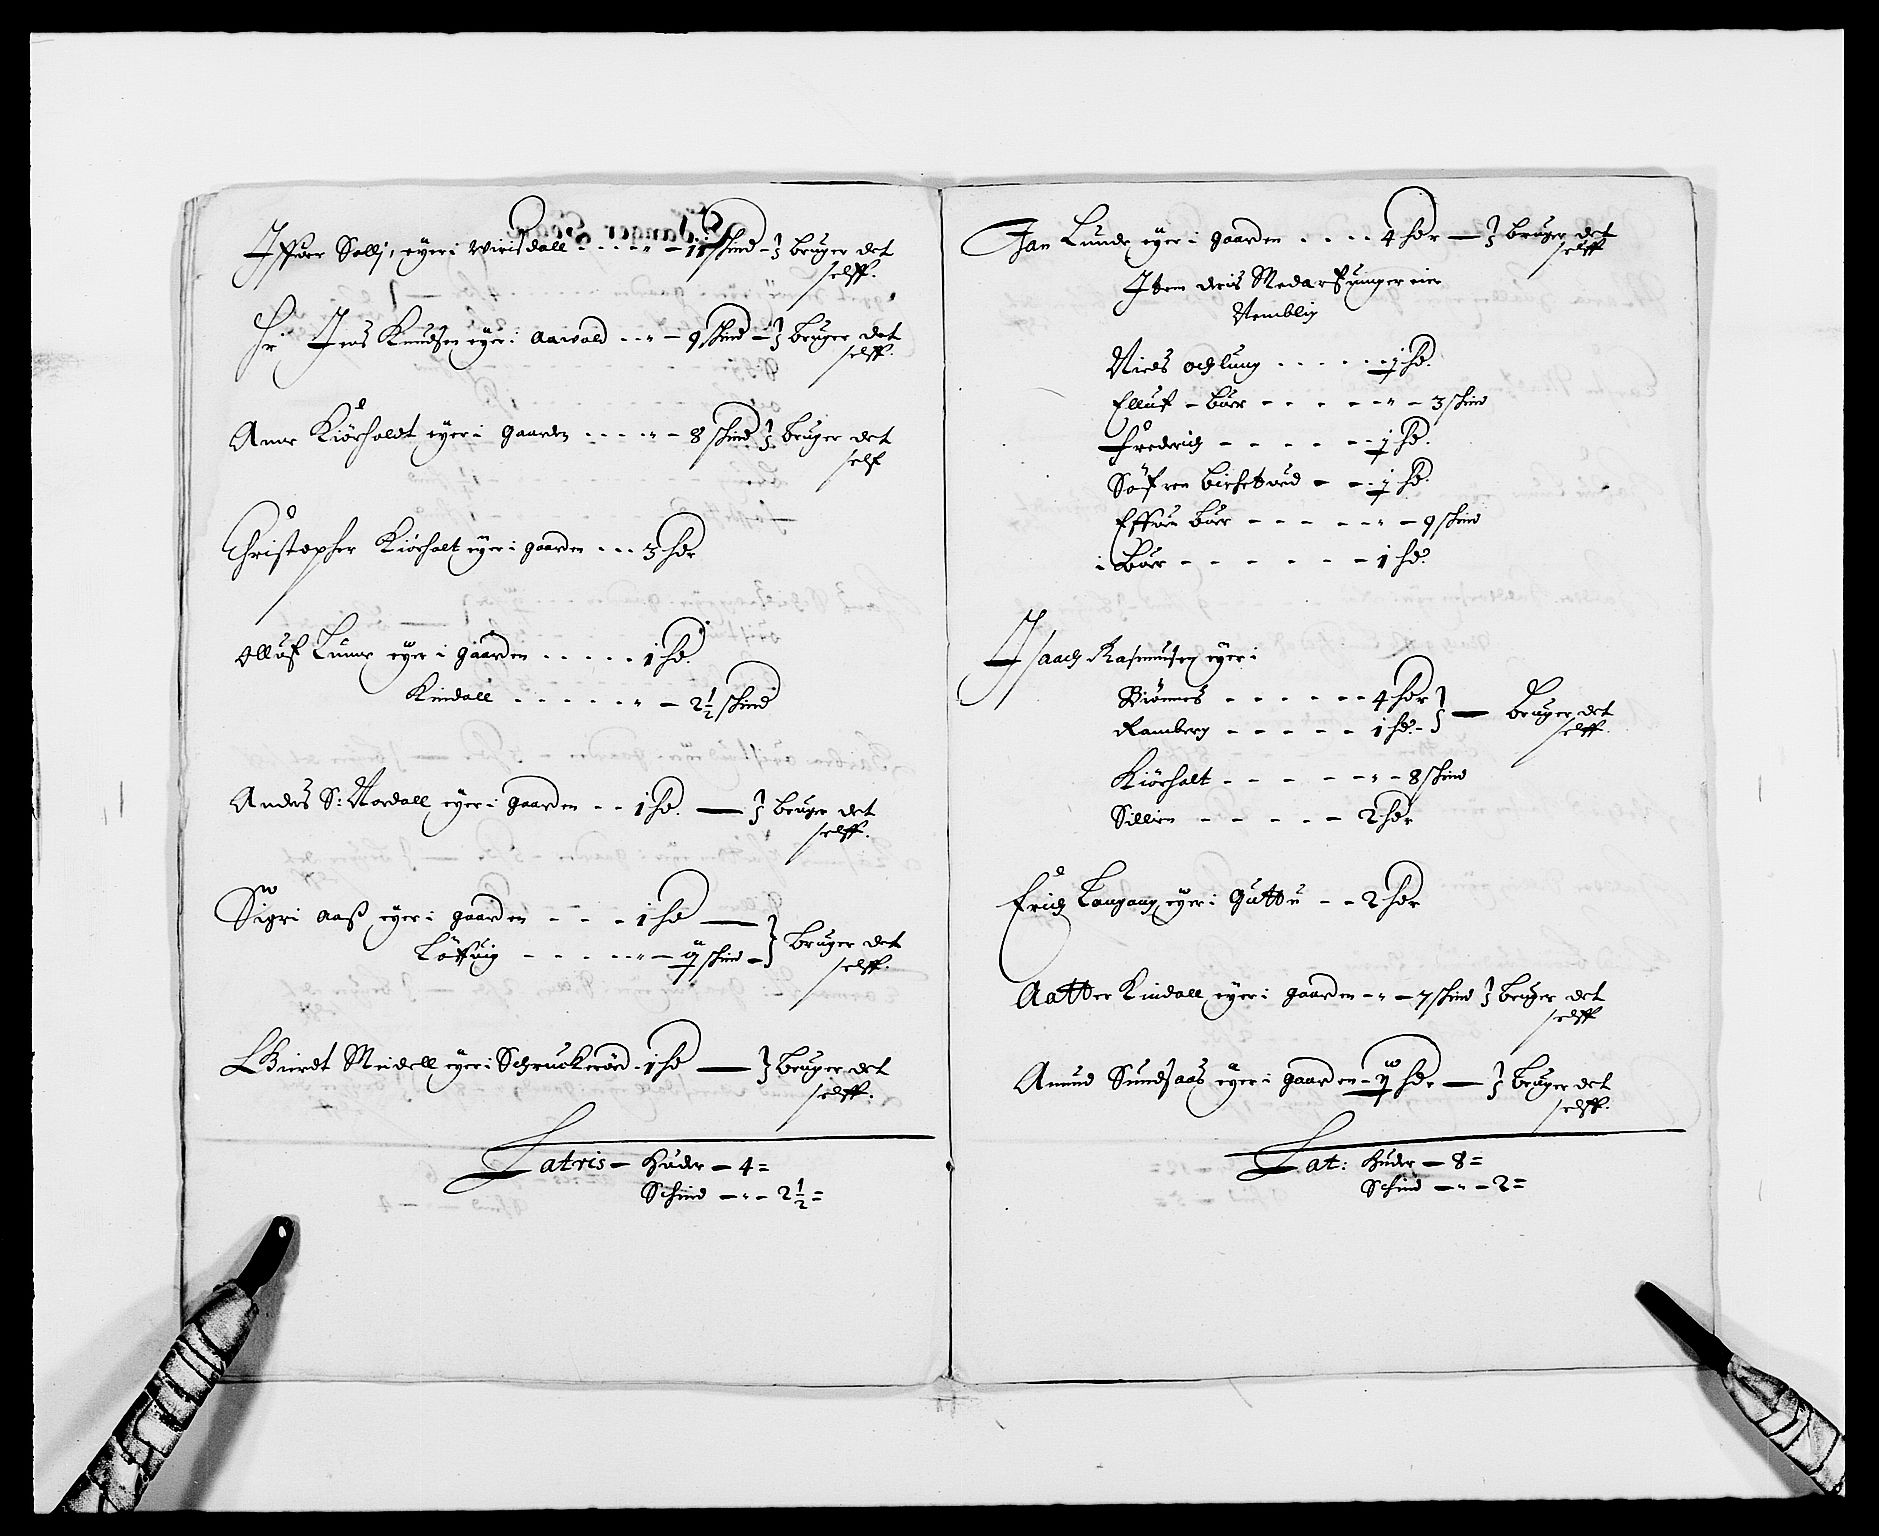 Iffuer Sollj, eyer i Wirisdall . . . . „ – 11 schind – } bruger det
selff.
Hr Jens Knudsen eyer i Aavold . . „ – 9 schind – } bruger det
selff.
Anne Kiörholdt eyer i gaarden . . . . „ – 8 schind } bruger det
self
Christopher Kiörholt eyer i gaarden . . . 3 hdr
Olluf Lunde eyer i gaarden . . . . . 1 hd.
Kindall . . . . . „ – 2½ schind
Anders S: Nordall eyer i gaarden . . 1 hd. — } bruger det
selff.
Sigri Aaß eyer i gaarden - - - 1 hd —
Löffuig - - - - „ – schind – } bruger det
selff.
Gierdt Meidell eyer i Schruckeröd - 1 hd — } bruger det
selff.
Latris – Huder – 4 =
Schind – „ – 2½ =
Jan Lunde eyer i gaarden . . . . 4 hdr — } bruger det
selff
Item deris Medarfuinger eier
Nemblig
Niels . . . . . ½ hd.
Elluf – Börr - - - - „ – 3 schind
Fredrich - - - - - ½ hd.
Söfren Birketvед - - ½ hd.
Effuen Börr - - - - „ – 9 schind
i Börr - - - - - - 1 hd.
Isaach Rasmusen eyer i
Biönnes - - - - - - 4 hdr
Ramberg - - - - - 1 hd. - } — bruger det
selff.
Kiörholt - - - - - „ – 8 schind
Sillien - - - - - 2 hdr
Erich Langang eyer i Guttu - - 2 hdr
Aatter Kindall eyer i gaarden - „ – 7 schind } bruger det
selff
Amund Sundsaas eyer i gaarden - hdr — } bruger det
selff.
Lat: Huder – 8 =
Schind – „ – 2 =